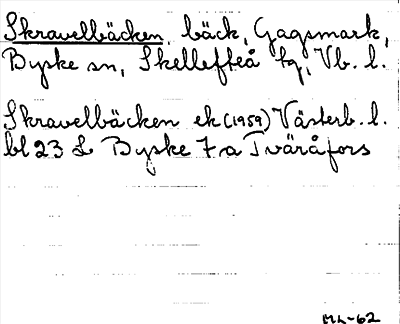 Skravelbäcken, bäck, Gagsmark,
Byske sn, Skellefteå tg, Vb. l.
Skravelbäcken ek (1959) Västerb. l.
bl 23 L Byske 7 a Tväråfors
ML-62